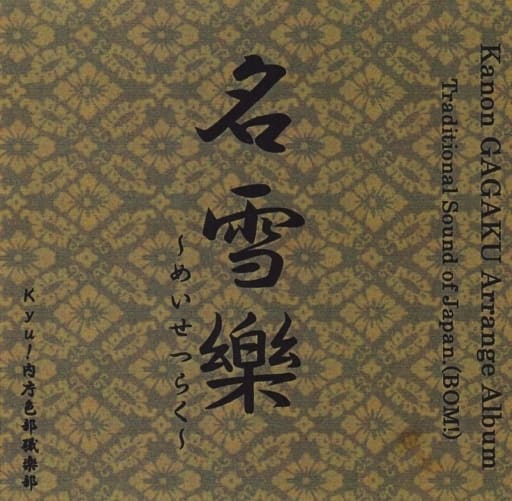 Kanon GAGAKU Arrange Album
Traditional Sound of Japan.(BOM!)
名雪樂
～めいせつらく～
Kyu!内庁色部職楽部